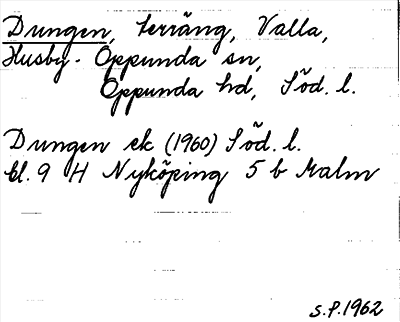 Dungen, terräng, Valla,
Husby-Oppunda sn,
Oppunda hd, Söd. l.
Dungen ek (1960) Söd. l.
bl. 9 H Nyköping 5 b Malm
S.P. 1962